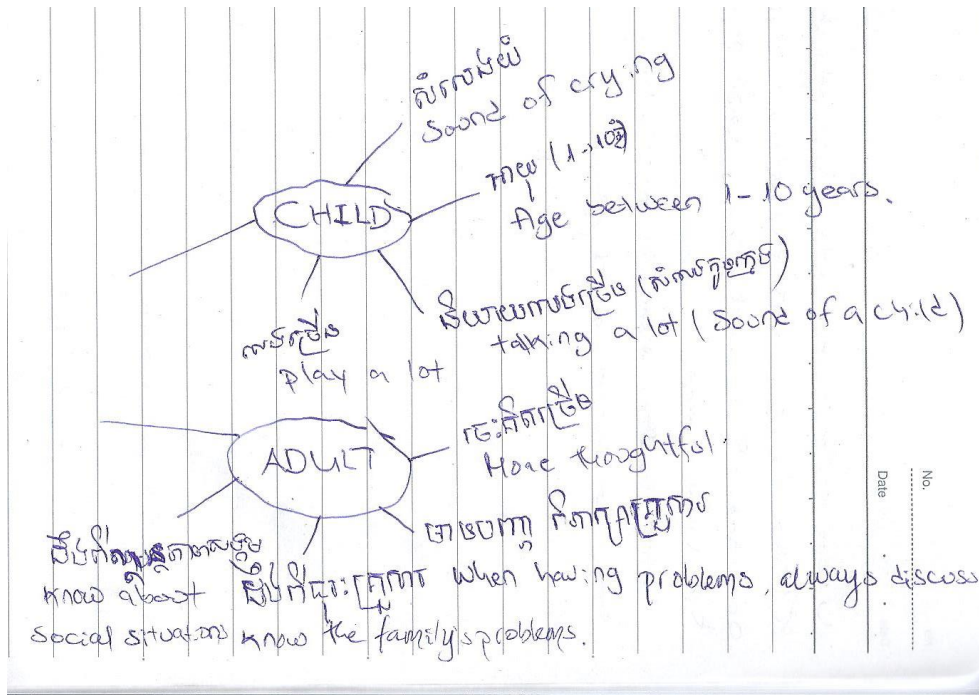 សំលេងយំ
Sound of crying
អាយុ (1-10ឆ្នាំ)
Age between 1-10 years.
CHILD
និយាយលេងច្រើន (សំលេងកូនក្មេង)
talking a lot (Sound of a child)
លេងច្រើន
play a lot
ចេះគិតច្រើន
More thoughtful.
ADULT
មានបញ្ហា ពិភាក្សាគ្រួសារ
when having problems, always discuss
ដឹងពីសង្គម
know about
social situations
ដឹងពីជួរគ្រួសារ
know the family's problems.
No.
Date